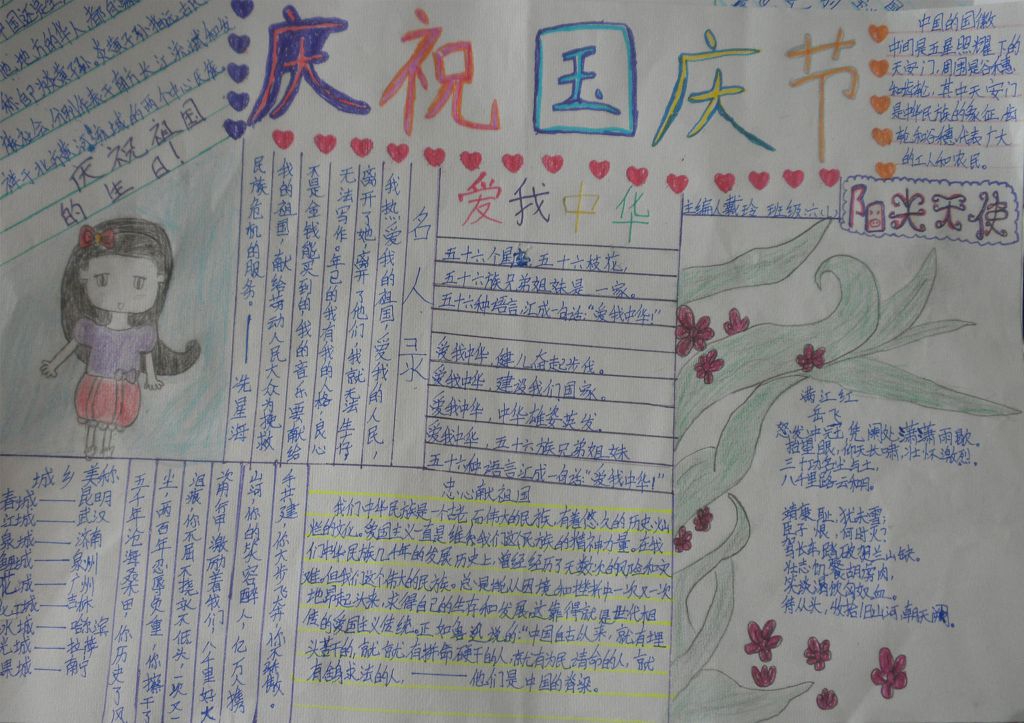 庆祝国庆节
中国的国徽
中间是五星照耀下的
天安门,周围是谷穗
和齿轮,其中天安门
是中华民族的象征,齿
轮和谷穗代表广大
的工人和农民。
庆祝祖国
的生日!
爱我中华
主编人戴玲 班级六小
阳光天使
名人录
我热爱我的祖国,爱我的人民,
离开了她,离开了他们,我就无法生存,
无法写作。 
不是金钱能买到的
我的音乐要献给
我的祖国,献给劳动人民大众为挽救
民族危机的服务。——冼星海
五十六个星 五十六枝花,
五十六族兄弟姐妹是一家。
五十六种语言汇成一句话:“爱我中华!”
爱我中华 健儿奋起步伐。
爱我中华 建设我们国家。
爱我中华,中华雄姿英发。
爱我中华,五十六族兄弟姐妹
五十六种语言汇成一句话:“爱我中华!”
满江红
岳飞
怒发冲冠,凭阑处,潇潇雨歇。
抬望眼,仰天长啸,壮怀激烈。
三十功名尘与土,
八千里路云和月。
靖康耻,犹未雪;
臣子恨,何时灭?
驾长车踏破贺兰山缺。
壮志饥餐胡虏肉,
笑谈渴饮匈奴血。
待从头,收拾旧山河,朝天阙。
城乡美称
春城——昆明
江城——武汉
泉城——济南
鲤城——泉州
花城——广州
北江城——吉林
冰城——哈尔滨
光城——拉萨
果城——南宁
手共建,你大步飞奔,你不骄傲。
山弱,你的笑容醉人,亿万人携
激励着我们;八千里好大
你不屈不挠永不低头;一次又一
尘,两百年忍辱负重,你擦干了
五千年沧海桑田,你历史了风
忠心献祖国
我们中华民族是一个古老而伟大的民族,有着悠久的历史,灿
烂的文化。爱国主义一直是维系我们这个民族的精神力量。在我
们中华民族几千年的发展历史上,曾经经历了无数次的风险和灾
难,但我们这个伟大的民族。总是能从困境和挫折中一次又一次
地昂起头来,求得自己的生存和发展,这靠得就是世代相
传的爱国主义传统。正如鲁迅说的:“中国自古从来,就有埋
头苦干的,就有拼命硬干的人,就有为民请命的人,就
有舍身求法的人,——他们是中国的脊梁。